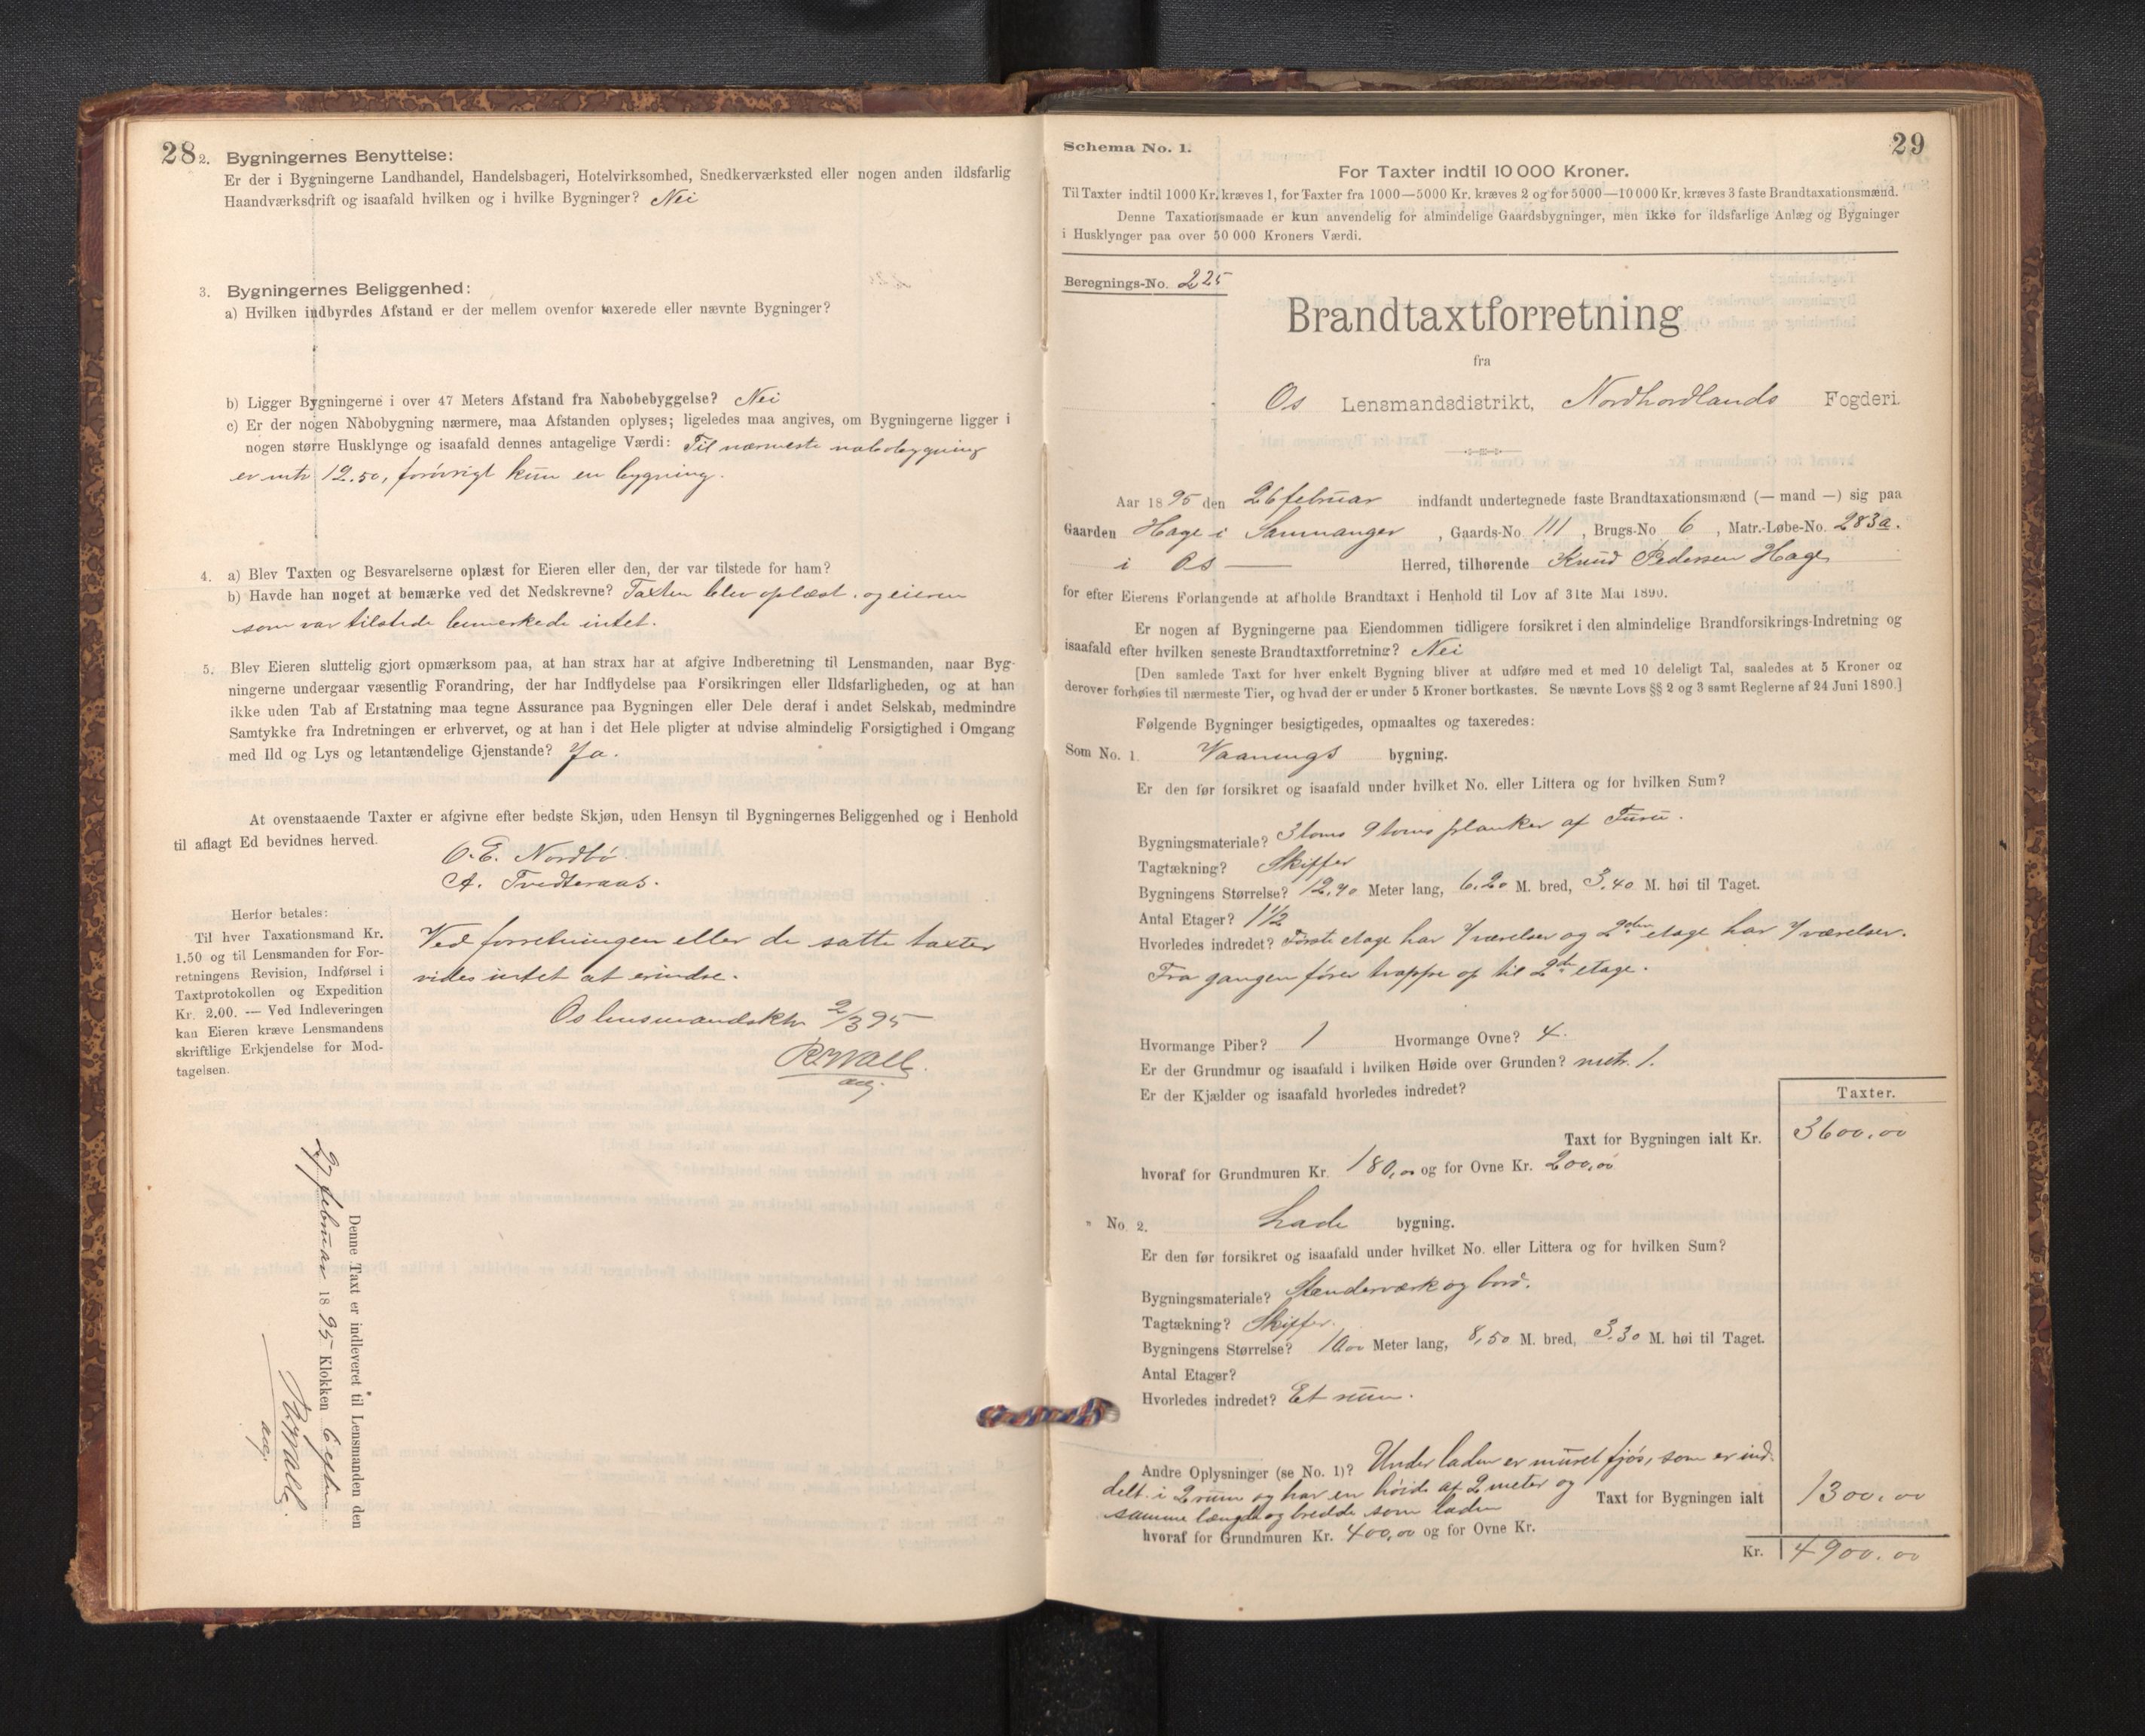 28
2. Bygningernes Benyttelse:
Er der i Bygningerne Landhandel, Handelsbageri, Hotelvirksomhed, Snedkerværksted eller nogen anden ildsfarlig
Haandværksdrift og isaafald hvilken og i hvilke Bygninger? Nei
3. Bygningernes Beliggenhed:
a) Hvilken indbyrdes Afstand er der mellem ovenfor taxerede eller nævnte Bygninger?
b) Ligger Bygningerne i over 47 Meters Afstand fra Nabobebyggelse? Nei
c) Er der nogen Nabobygning nærmere, maa Afstanden oplyses; ligeledes maa angives, om Bygningerne ligger i
nogen større Husklynge og isaafald dennes antagelige Værdi: Til nærmeste nabobygning
er mtr 12.50, forövrigt kun en bygning.
4. a) Blev Taxten og Besvarelserne oplæst for Eieren eller den, der var tilstede for ham?
b) Havde han noget at bemærke ved det Nedskrevne? Taxten blev oplæst, og eieren
som var tilstede bemerkede intet.
5. Blev Eieren sluttelig gjort opmærksom paa, at han strax har at afgive Indberetning til Lensmanden, naar Byg-
ningerne undergaar væsentlig Forandring, der har Indflydelse paa Forsikringen eller Ildsfarligheden, og at han
ikke uden Tab af Erstatning maa tegne Assurance paa Bygningen eller Dele deraf i andet Selskab, medmindre
Samtykke fra Indretningen er erhvervet, og at han i det Hele pligter at udvise almindelig Forsigtighed i Omgang
med Ild og Lys og letantændelige Gjenstande? Ja.
At ovenstaaende Taxter er afgivne efter bedste Skjøn, uden Hensyn til Bygningernes Beliggenhed og i Henhold
til aflagt Ed bevidnes herved.
O. E. Nordbö.
A. Tvedteraas.
Herfor betales:
Til hver Taxationsmand Kr.
1.50 og til Lensmanden for For-
retningens Revision, Indførsel i
Taxtprotokollen og Expedition
Kr. 2.00. — Ved Indleveringen
kan Eieren kræve Lensmandens
skriftlige Erkjendelse for Mod-
tagelsen.
Ved forretningen eller de satte taxter
vides intet at erindre.
Os lensmandsktr 2/3 95
Denne Taxt er indleveret til Lensmanden den
27 februar 1895 Klokken 6 efter
29
Schema No. 1.
For Taxter indtil 10 000 Kroner.
Til Taxter indtil 1000 Kr. kræves 1, for Taxter fra 1000—5000 Kr. kræves 2 og for 5000—10 000 Kr. kræves 3 faste Brandtaxationsmænd.
Denne Taxationsmaade er kun anvendelig for almindelige Gaardsbygninger, men ikke for ildsfarlige Anlæg og Bygninger
i Husklynger paa over 50 000 Kroners Værdi.
Beregnings-No. 225
Brandtaxtforretning
fra
Os Lensmandsdistrikt, Nordhordlands Fogderi
Aar 1895 den 26 februar indfandt undertegnede faste Brandtaxationsmænd (— mand —) sig paa
Gaarden Hage i Sammanger, Gaards-No 111, Brugs-No 6, Matr.-Løbe-No. 283a.
i Os Herred, tilhørende Knud Pedersen Hage
for efter Eierens Forlangende at afholde Brandtaxt i Henhold til Lov af 31te Mai 1890.
Er nogen af Bygningerne paa Eiendommen tidligere forsikret i den almindelige Brandforsikrings-Indretning og
isaafald efter hvilken seneste Brandtaxtforretning? Nei
[Den samlede Taxt for hver enkelt Bygning bliver at udføre med et med 10 deleligt Tal, saaledes at 5 Kroner og
derover forhøies til nærmeste Tier, og hvad der er under 5 Kroner bortkastes. Se nævnte Lovs §§ 2 og 3 samt Reglerne af 24 Juni 1890.]
Følgende Bygninger besigtigedes, opmaaltes og taxeredes:
Som No. 1. Vaanings bygning.
Er den før forsikret og isaafald under hvilket No. eller Littera og for hvilken Sum?
Bygningsmateriale? 3 toms 9 toms planker af Furu.
Tagtækning? Skiffer
Bygningens Størrelse? 12.40 Meter lang, 6.20 M. bred, 3.40 M. høi til Taget.
Antal Etager? 1 1/2
Hvorledes indredet? Förste etage har 4 værelser og 2den etage har 4 værelser.
Fra gangen förer trappe op til 2de etage.
Hvormange Piber? 1 Hvormange Ovne? 4.
Er der Grundmur og isaafald i hvilken Høide over Grunden? mtr. 1.
Er der Kjælder og isaafald hvorledes indredet?
Taxter.
Taxt for Bygningen ialt Kr. 3600.00
hvoraf for Grundmuren Kr. 180,00 og for Ovne Kr. 200,00
" No. 2. Lade bygning.
Er den før forsikret og isaafald under hvilket No. eller Littera og for hvilken Sum?
Bygningsmateriale? Stenderværk og bord.
Tagtækning? Skiffer.
Bygningens Størrelse? Meter lang, 8,50 M. bred, 3.30 M. høi til Taget.
Antal Etager?
Hvorledes indredet? Et rum.
Andre Oplysninger (se No. 1)? Under laden er muret fjös, som er ind-
delt i 2 rum og har en höide af 2 meter og
samme længde og bredde som laden
Taxt for Bygningen ialt 1300.00
hvoraf for Grundmuren Kr. 400,00 og for Ovne Kr.
Kr. 4900.00